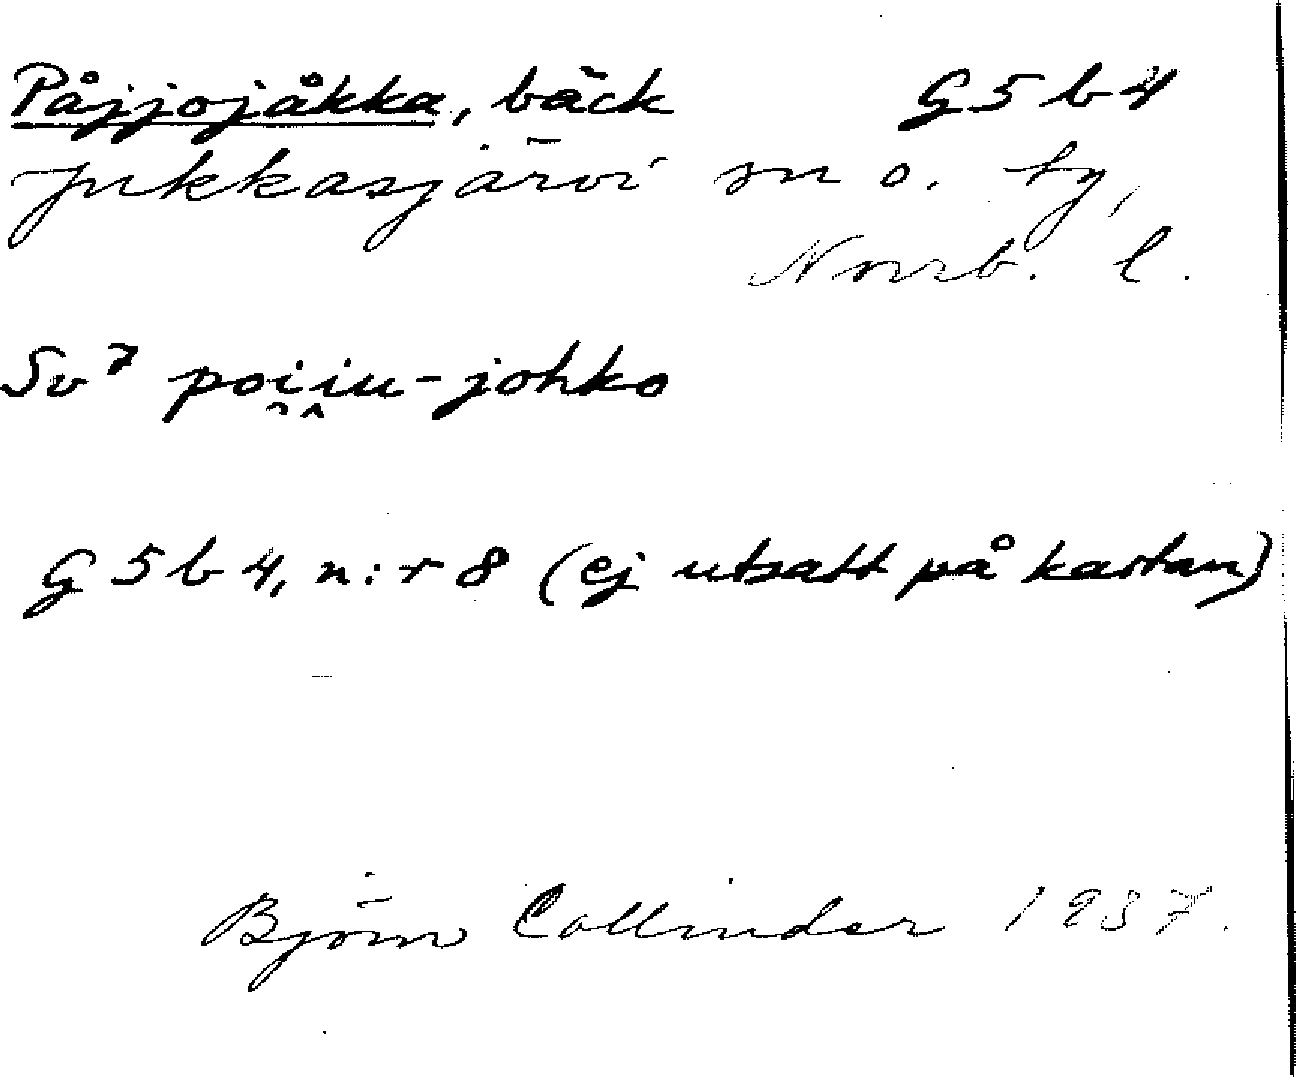 Påjjojåkka, bäck G5b4
Jukkasjärvi sn o. tg,
Norrb. l.
Sv⁷ poi̯i̭u-johko
G5b4, n:r 8 (ej utsatt på kartan)
Björn Collinder 1937.